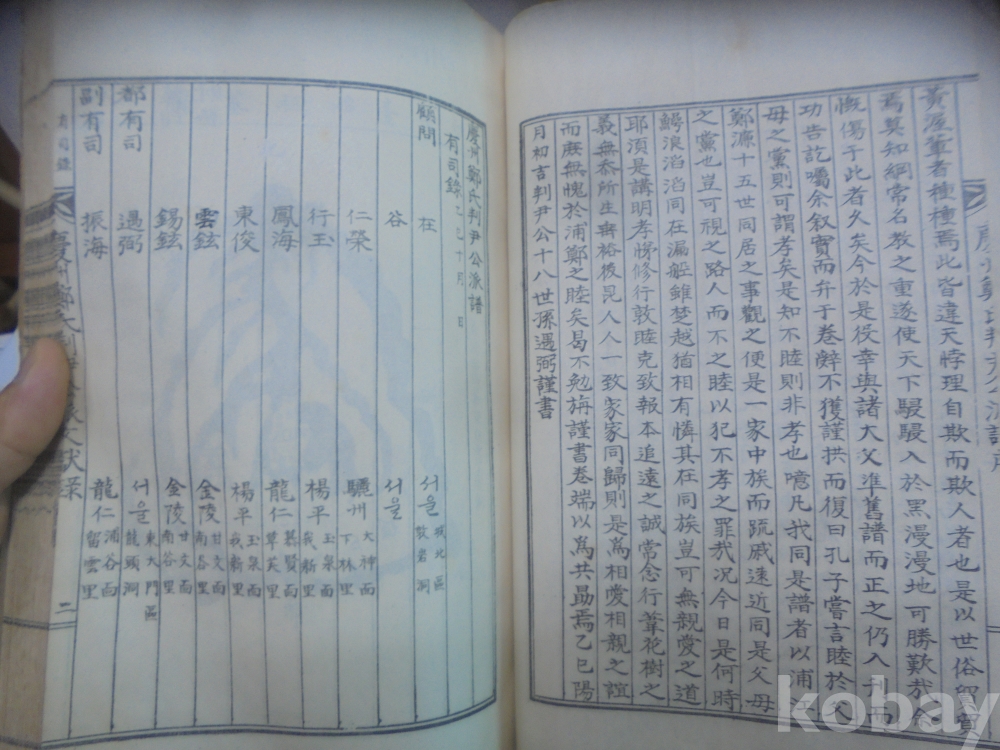 黃渥輩者種種焉此皆違天悖理自欺而欺人者也是以世俗
焉莫知綱常名教之重遂使天下駸駸入於黑漫漫地可勝歎哉余
慨傷于此者久矣今於是役幸與諸大父準舊譜而正之仍入刊
功告訖囑余叙實而弁于卷辭不獲謹拱而復曰孔子嘗言睦於父
母之黨則可謂孝矣是知不睦則非孝也噫凡我同是譜者以浦
鄭濂十五世同居之事觀之便是一家中族而踈戚遠近同是父母
之黨也豈可視之路人而不之睦以犯不孝之罪哉况今日是何時
鰐浪滔滔同在漏舩雖楚越猶相有憐其在同族豈可無親愛之道
耶須是講明孝悌修行敦睦克致報本追遠之誠當念行葦花樹之
義無忝所生垂裕後昆人人一致家家同歸則是爲相愛相親之誼
而庶無愧於浦鄭之睦矣曷不勉旃謹書卷端以爲共勖焉乙巳陽
月初吉判尹公十八世孫遇弼謹書
慶州鄭氏判尹公派譜
有司錄 乙巳十月 日
顧問 在 서울 城北區
谷 서울
仁榮 驪州 大神面 下林里
行玉 楊平 玉泉面 我新里
鳳海 龍仁 慕賢面 草芙里
東俊 楊平 玉泉面 我新里
雲鉉 金陵 甘文面 南谷里
錫鉉 金陵 甘文面 南谷里
都有司 遇弼 서울 東大門區 龍頭洞
副有司 振海 龍仁 浦谷面 留雲里
有司錄
慶州鄭氏判尹公派文獻錄
二
kobay